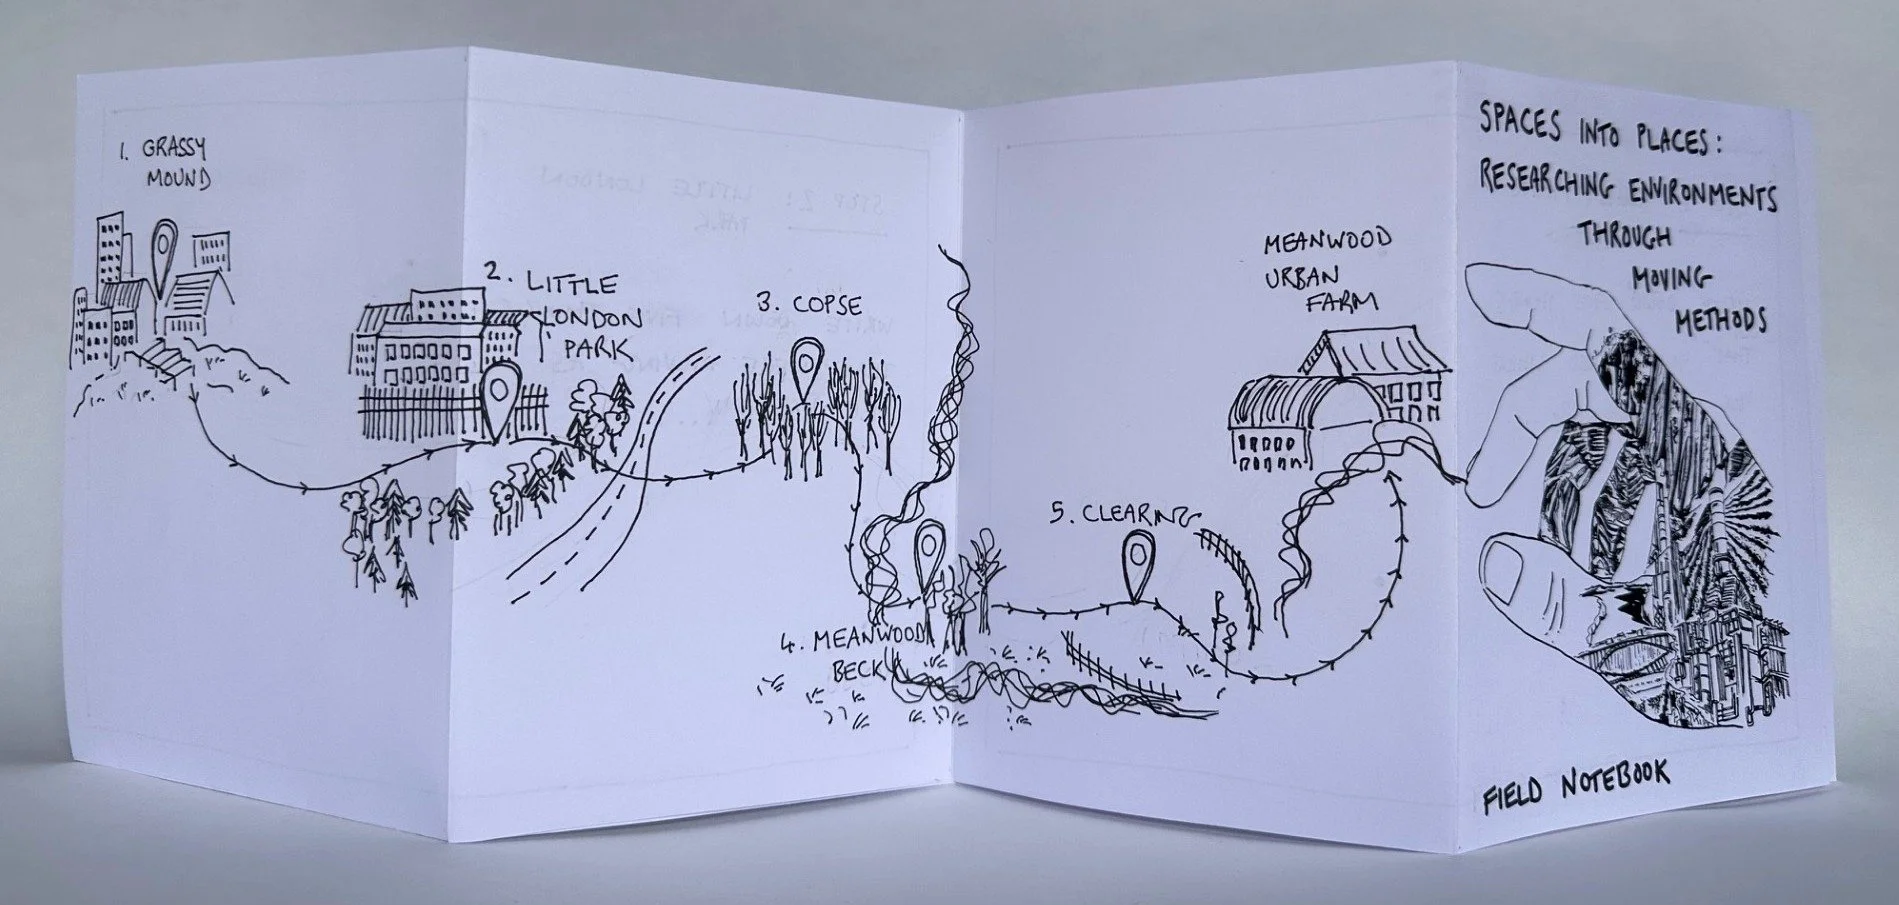 1. GRASSY
MOUND
2. LITTLE
LONDON
PARK
3. COPSE
4. MEANWOOD
BECK
5. CLEARING
MEANWOOD
URBAN
FARM
SPACES INTO PLACES:
RESEARCHING ENVIRONMENTS
THROUGH
MOVING
METHODS
FIELD NOTEBOOK
STEP 2: LITTLE LONDON
PARK